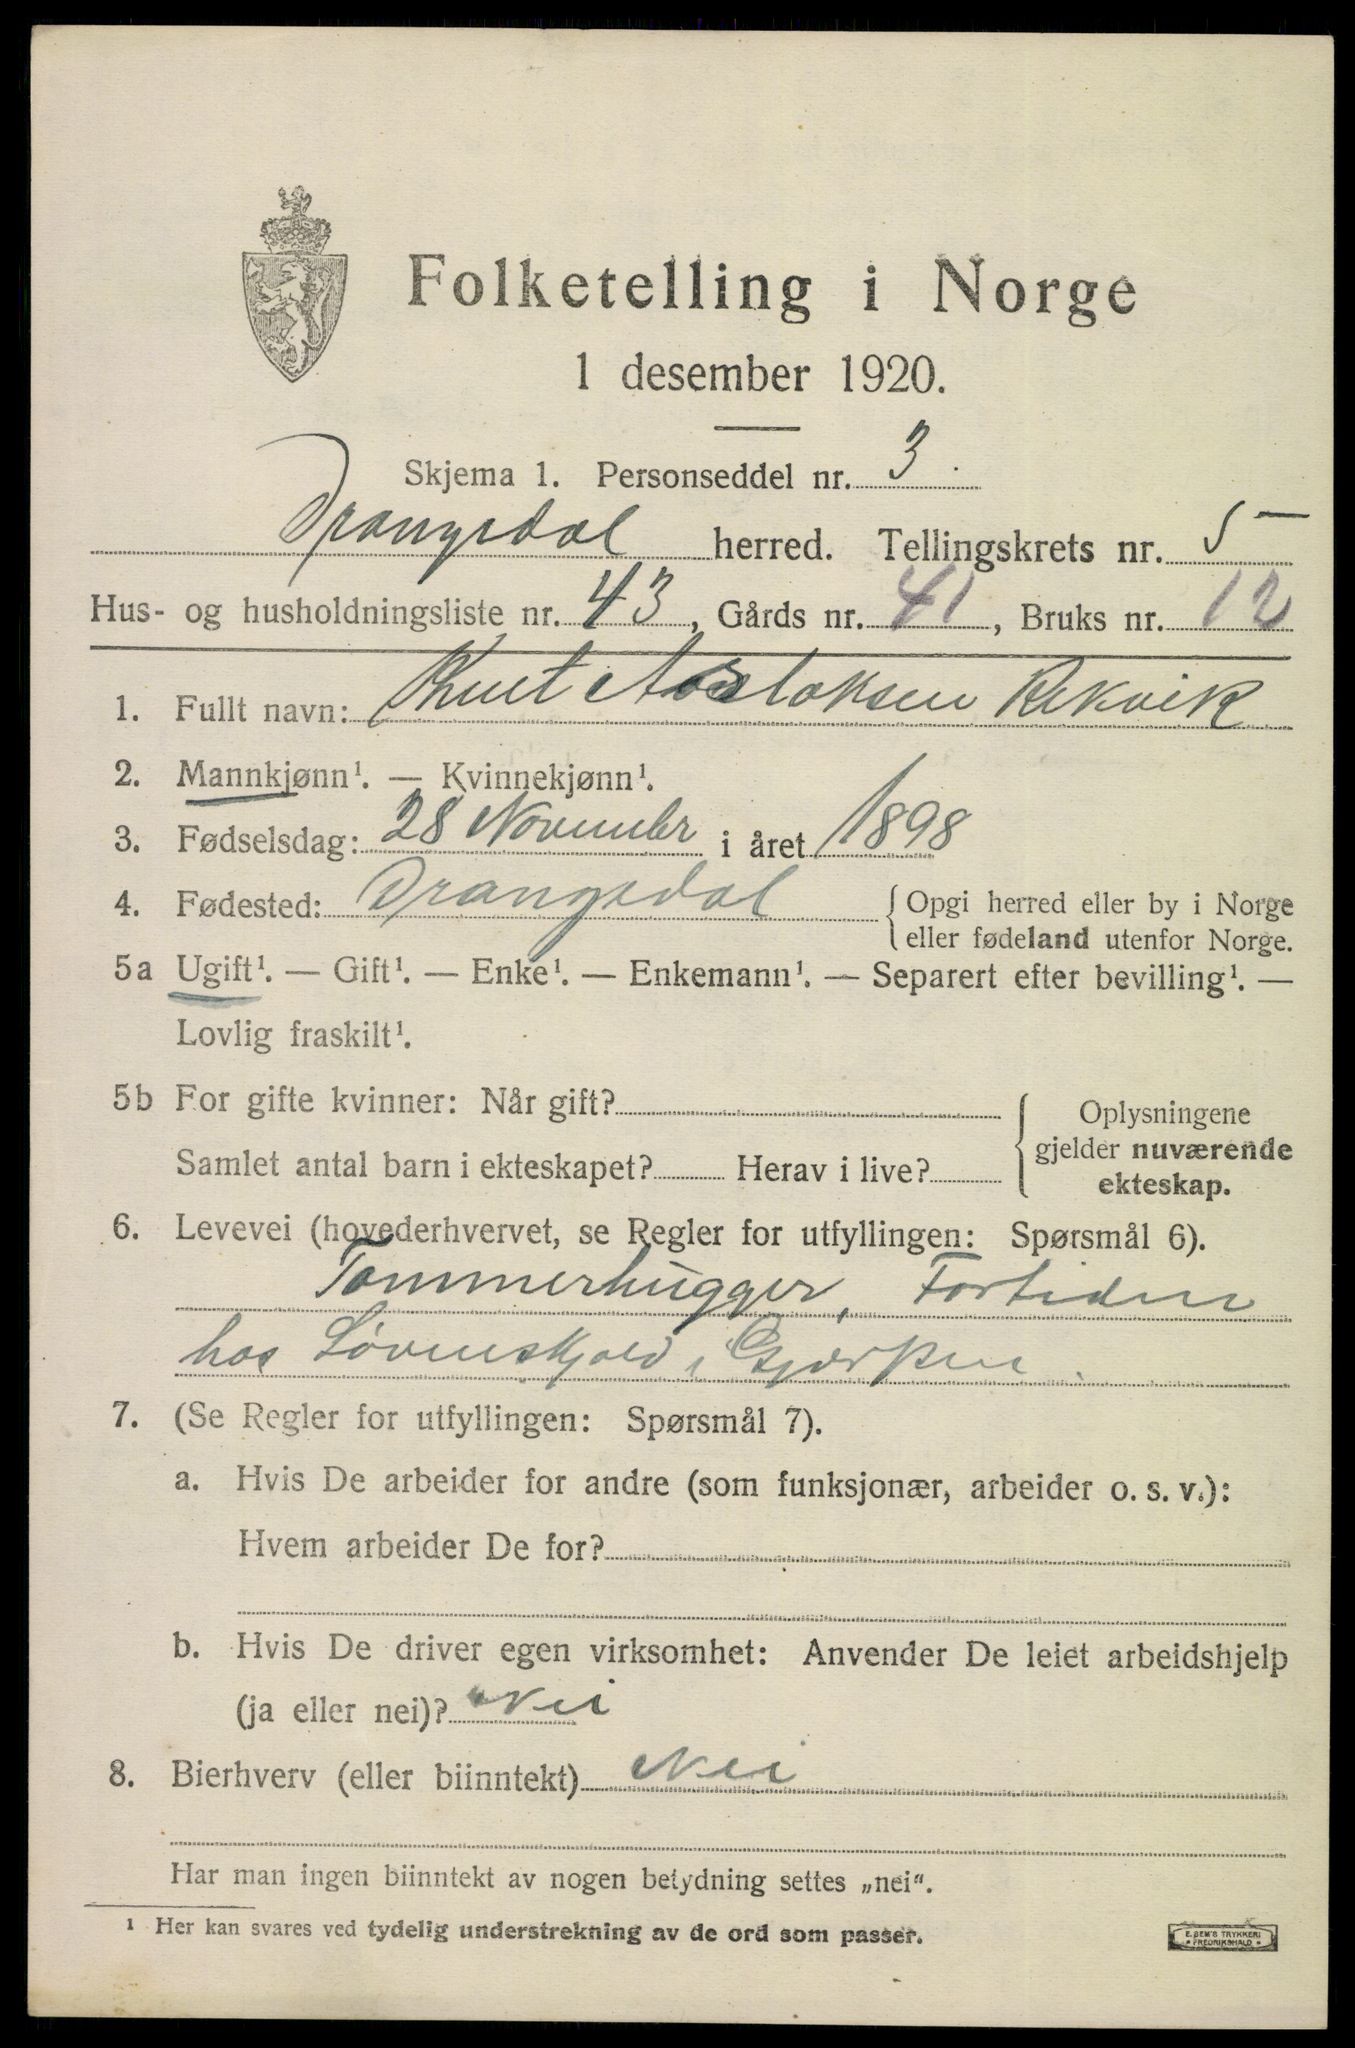 Folketelling i Norge
1 desember 1920.
Skjema 1. Personseddel nr. 3.
Drangedal herred. Tellingskrets nr. 5
Hus- og husholdningsliste nr. 43, Gårds nr. 41, Bruks nr. 12
1. Fullt navn: Knut Aslaksen Rekvik
2. Mannkjønn¹. — Kvinnekjønn¹.
3. Fødselsdag: 28 November i året 1898
4. Fødested: Drangedal { Opgi herred eller by i Norge
eller fødeland utenfor Norge.
5a Ugift¹. — Gift¹. — Enke¹. — Enkemann¹. — Separert efter bevilling¹. —
Lovlig fraskilt¹.
5b For gifte kvinner: Når gift?
Samlet antal barn i ekteskapet? Herav i live?
{ Oplysningene
gjelder nuværende
ekteskap.
6. Levevei (hovederhvervet, se Regler for utfyllingen: Spørsmål 6).
Tømmerhugger, Fortiden
hos Løvenskjold i Gjerpen.
7. (Se Regler for utfyllingen: Spørsmål 7).
a. Hvis De arbeider for andre (som funksjonær, arbeider o. s. v.):
Hvem arbeider De for?
b. Hvis De driver egen virksomhet: Anvender De leiet arbeidshjelp
(ja eller nei)? Nei
8. Bierhverv (eller biinntekt) Nei
Har man ingen biinntekt av nogen betydning settes „nei“.
¹ Her kan svares ved tydelig understrekning av de ord som passer.
E. SEM'S TRYKKERI
• FREDRIKSHALD •